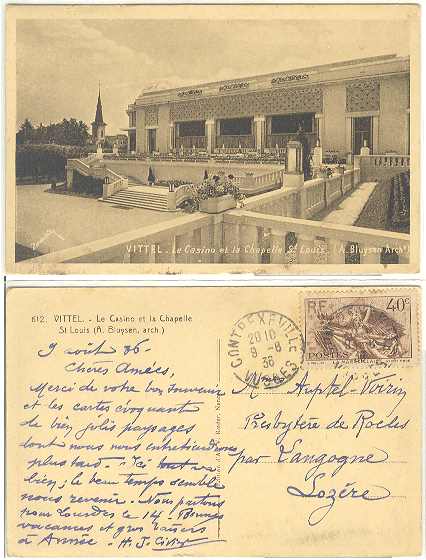 VITTEL. - Le Casino et la Chapelle St Louis. (A. Bluysen Arch.)
612. VITTEL. - Le Casino et la Chapelle
St Louis (A. Bluysen, arch.)
9 août 36-
Chères Amies,
Merci de votre bon souvenir
et les cartes évoquant
de bien jolis paysages
dont nous nous entretiendrons
plus tard. - Ici tout va
bien; le beau temps semble
nous revenir. Nous partons
pour Lourdes le 14 - Bonnes
vacances et gros baisers
à Année. - H. J.
CONTREXEVILLE
20 10
9 - 8
36
VOSGES
RF
40c
POSTES
LA MARSEILLAISE
Presbytère de Rocles
par Langogne
Lozère